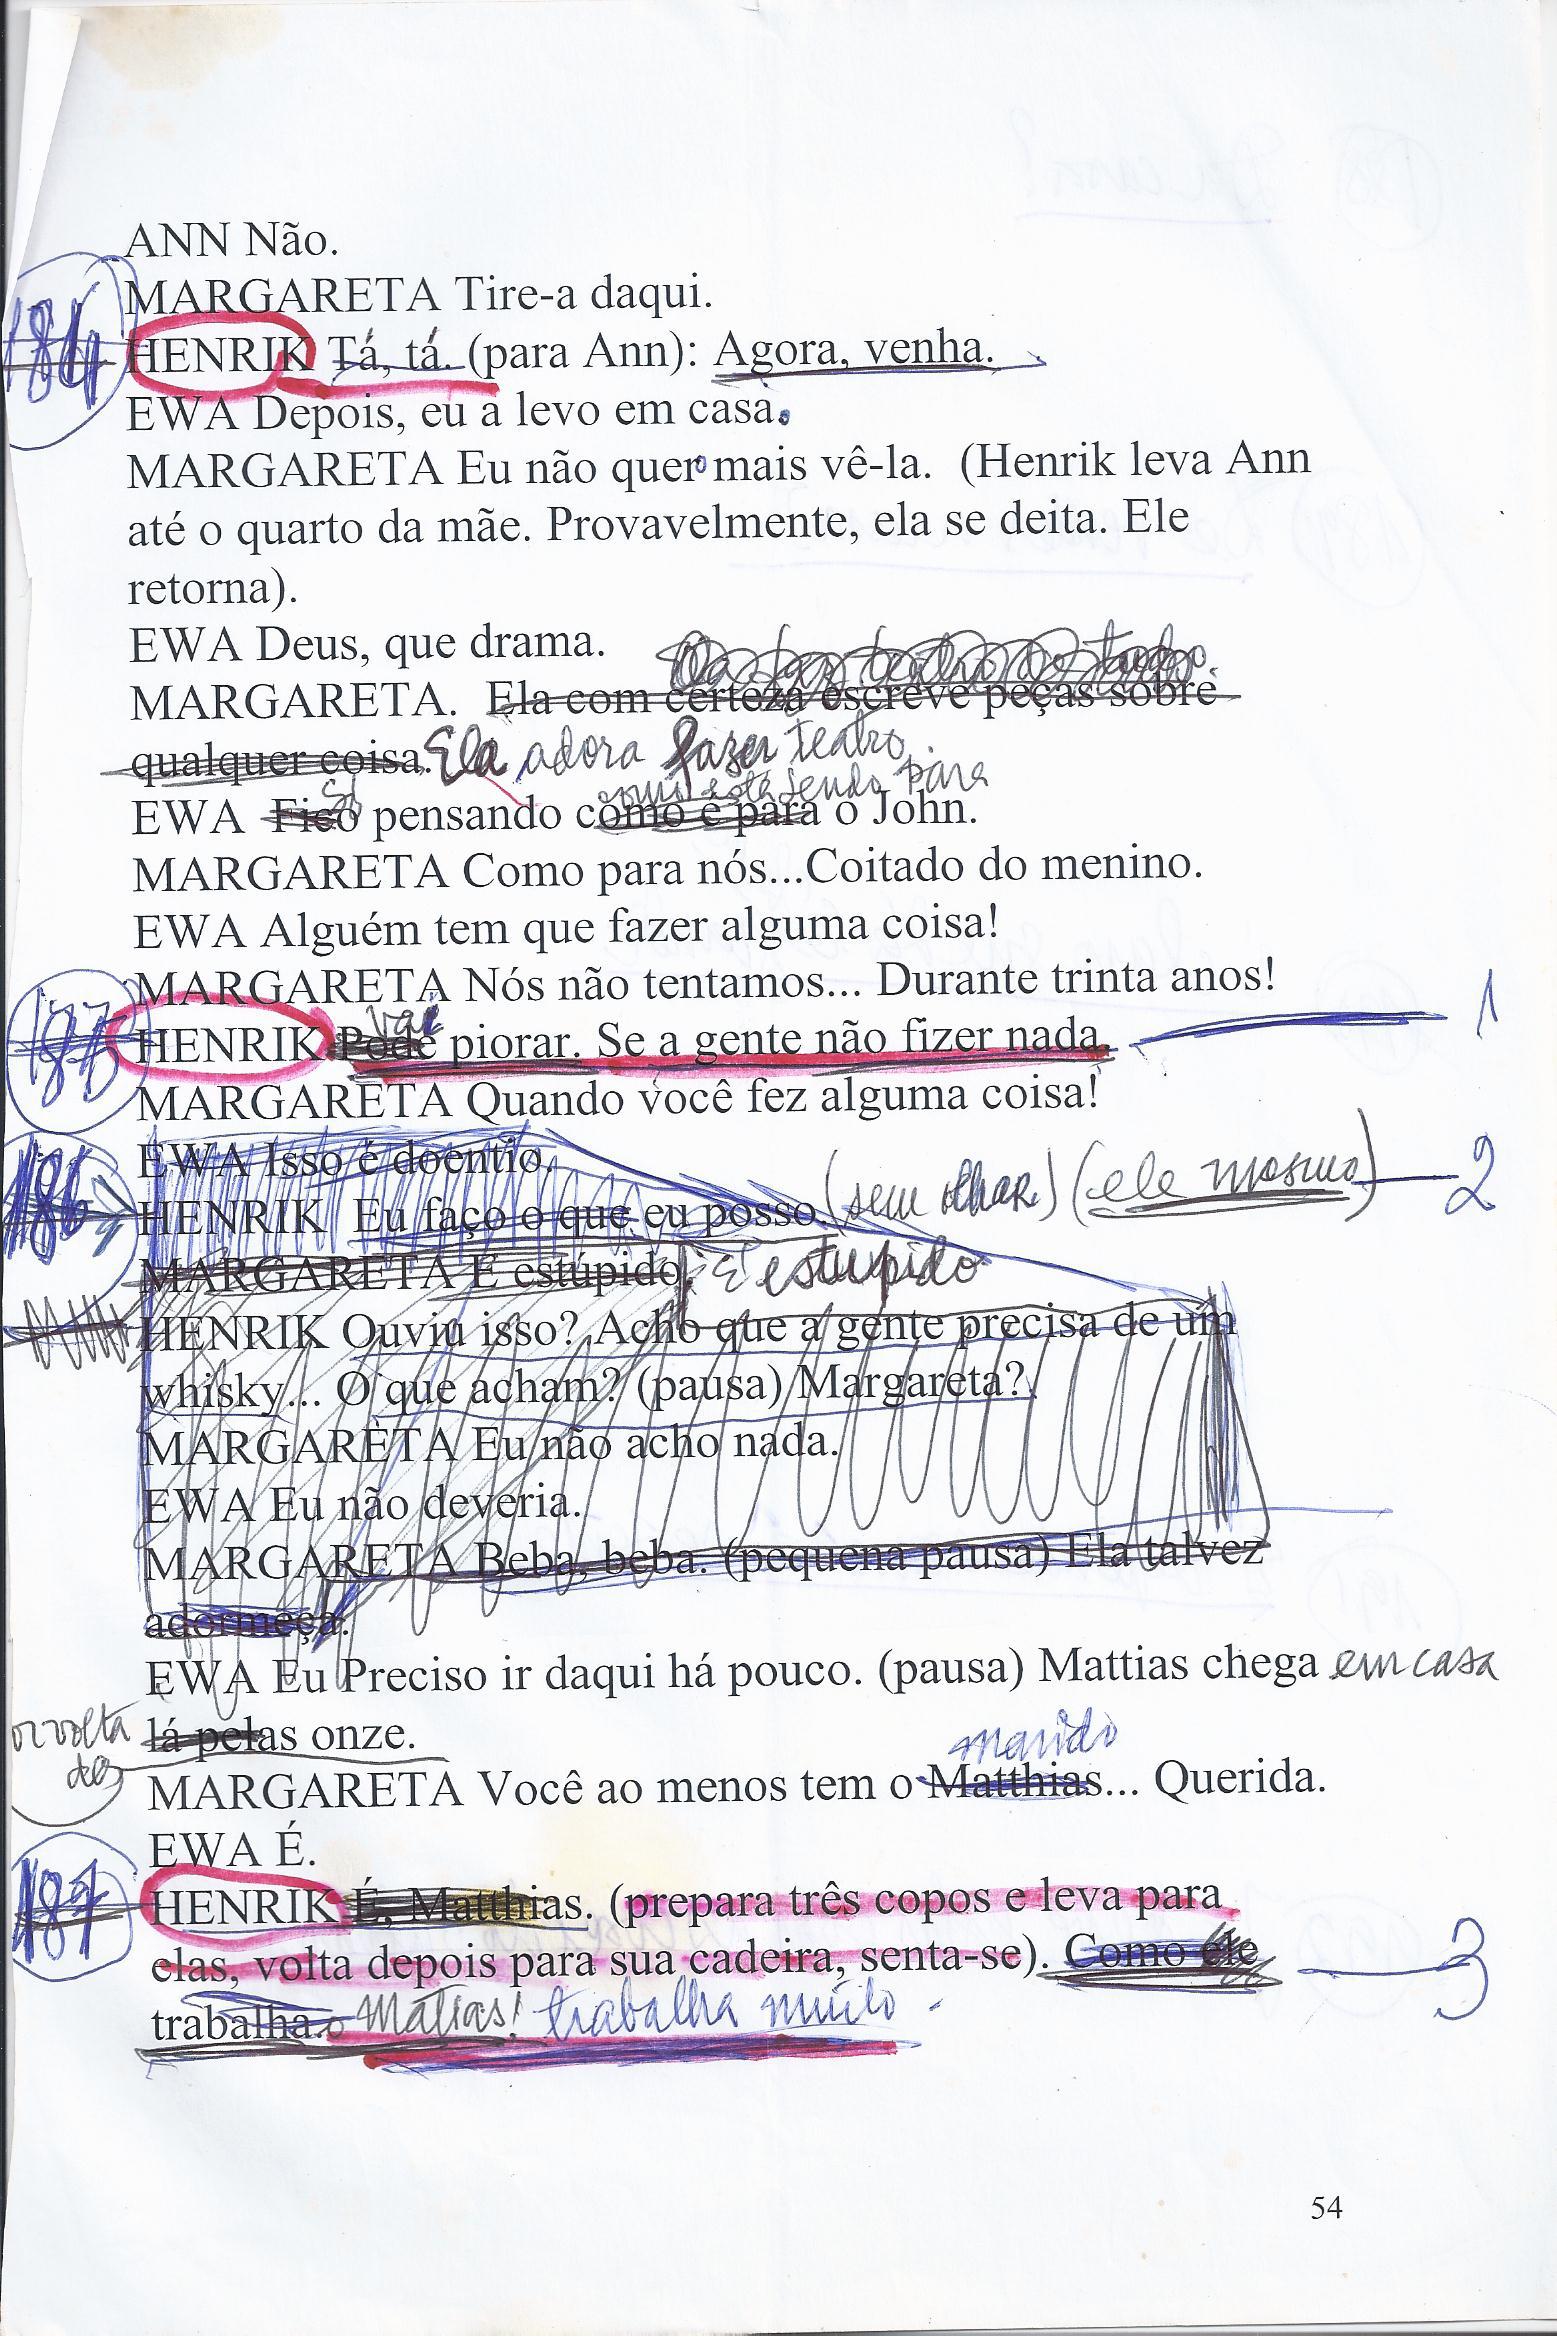 ANN Não.
MARGARETA Tire-a daqui.
HENRIK Tá, tá. (para Ann): Agora, venha.
EWA Depois, eu a levo em casa.
MARGARETA Eu não quero mais vê-la. (Henrik leva Ann
até o quarto da mãe. Provavelmente, ela se deita. Ele
retorna).
EWA Deus, que drama.
MARGARETA. Ela com certeza escreve peças sobre
qualquer coisa. Ela adora fazer teatro.
Só como está sendo para
EWA Fico pensando como é para o John.
MARGARETA Como para nós...Coitado do menino.
EWA Alguém tem que fazer alguma coisa!
MARGARETA Nós não tentamos... Durante trinta anos! 1
vai
HENRIK Pode piorar. Se a gente não fizer nada.
MARGARETA Quando você fez alguma coisa!
EWA Isso é doentio.
186 HENRIK Eu faço o que eu posso. (sem olhar) (ele mesmo) 2
MARGARETA É estúpido. É estupido
HENRIK Ouviu isso? Acho que a gente precisa de um
whisky... O que acham? (pausa) Margareta?
MARGARETA Eu não acho nada.
EWA Eu não deveria.
MARGARETA Beba, beba. (pequena pausa) Ela talvez
adormeça.
EWA Eu Preciso ir daqui há pouco. (pausa) Mattias chega em casa
volta das lá pelas onze.
marido
MARGARETA Você ao menos tem o Matthias... Querida.
EWA É.
187 HENRIK É, Matthias. (prepara três copos e leva para
elas, volta depois para sua cadeira, senta-se). Como ele 3
trabalha. Matias! trabalha muito.
54